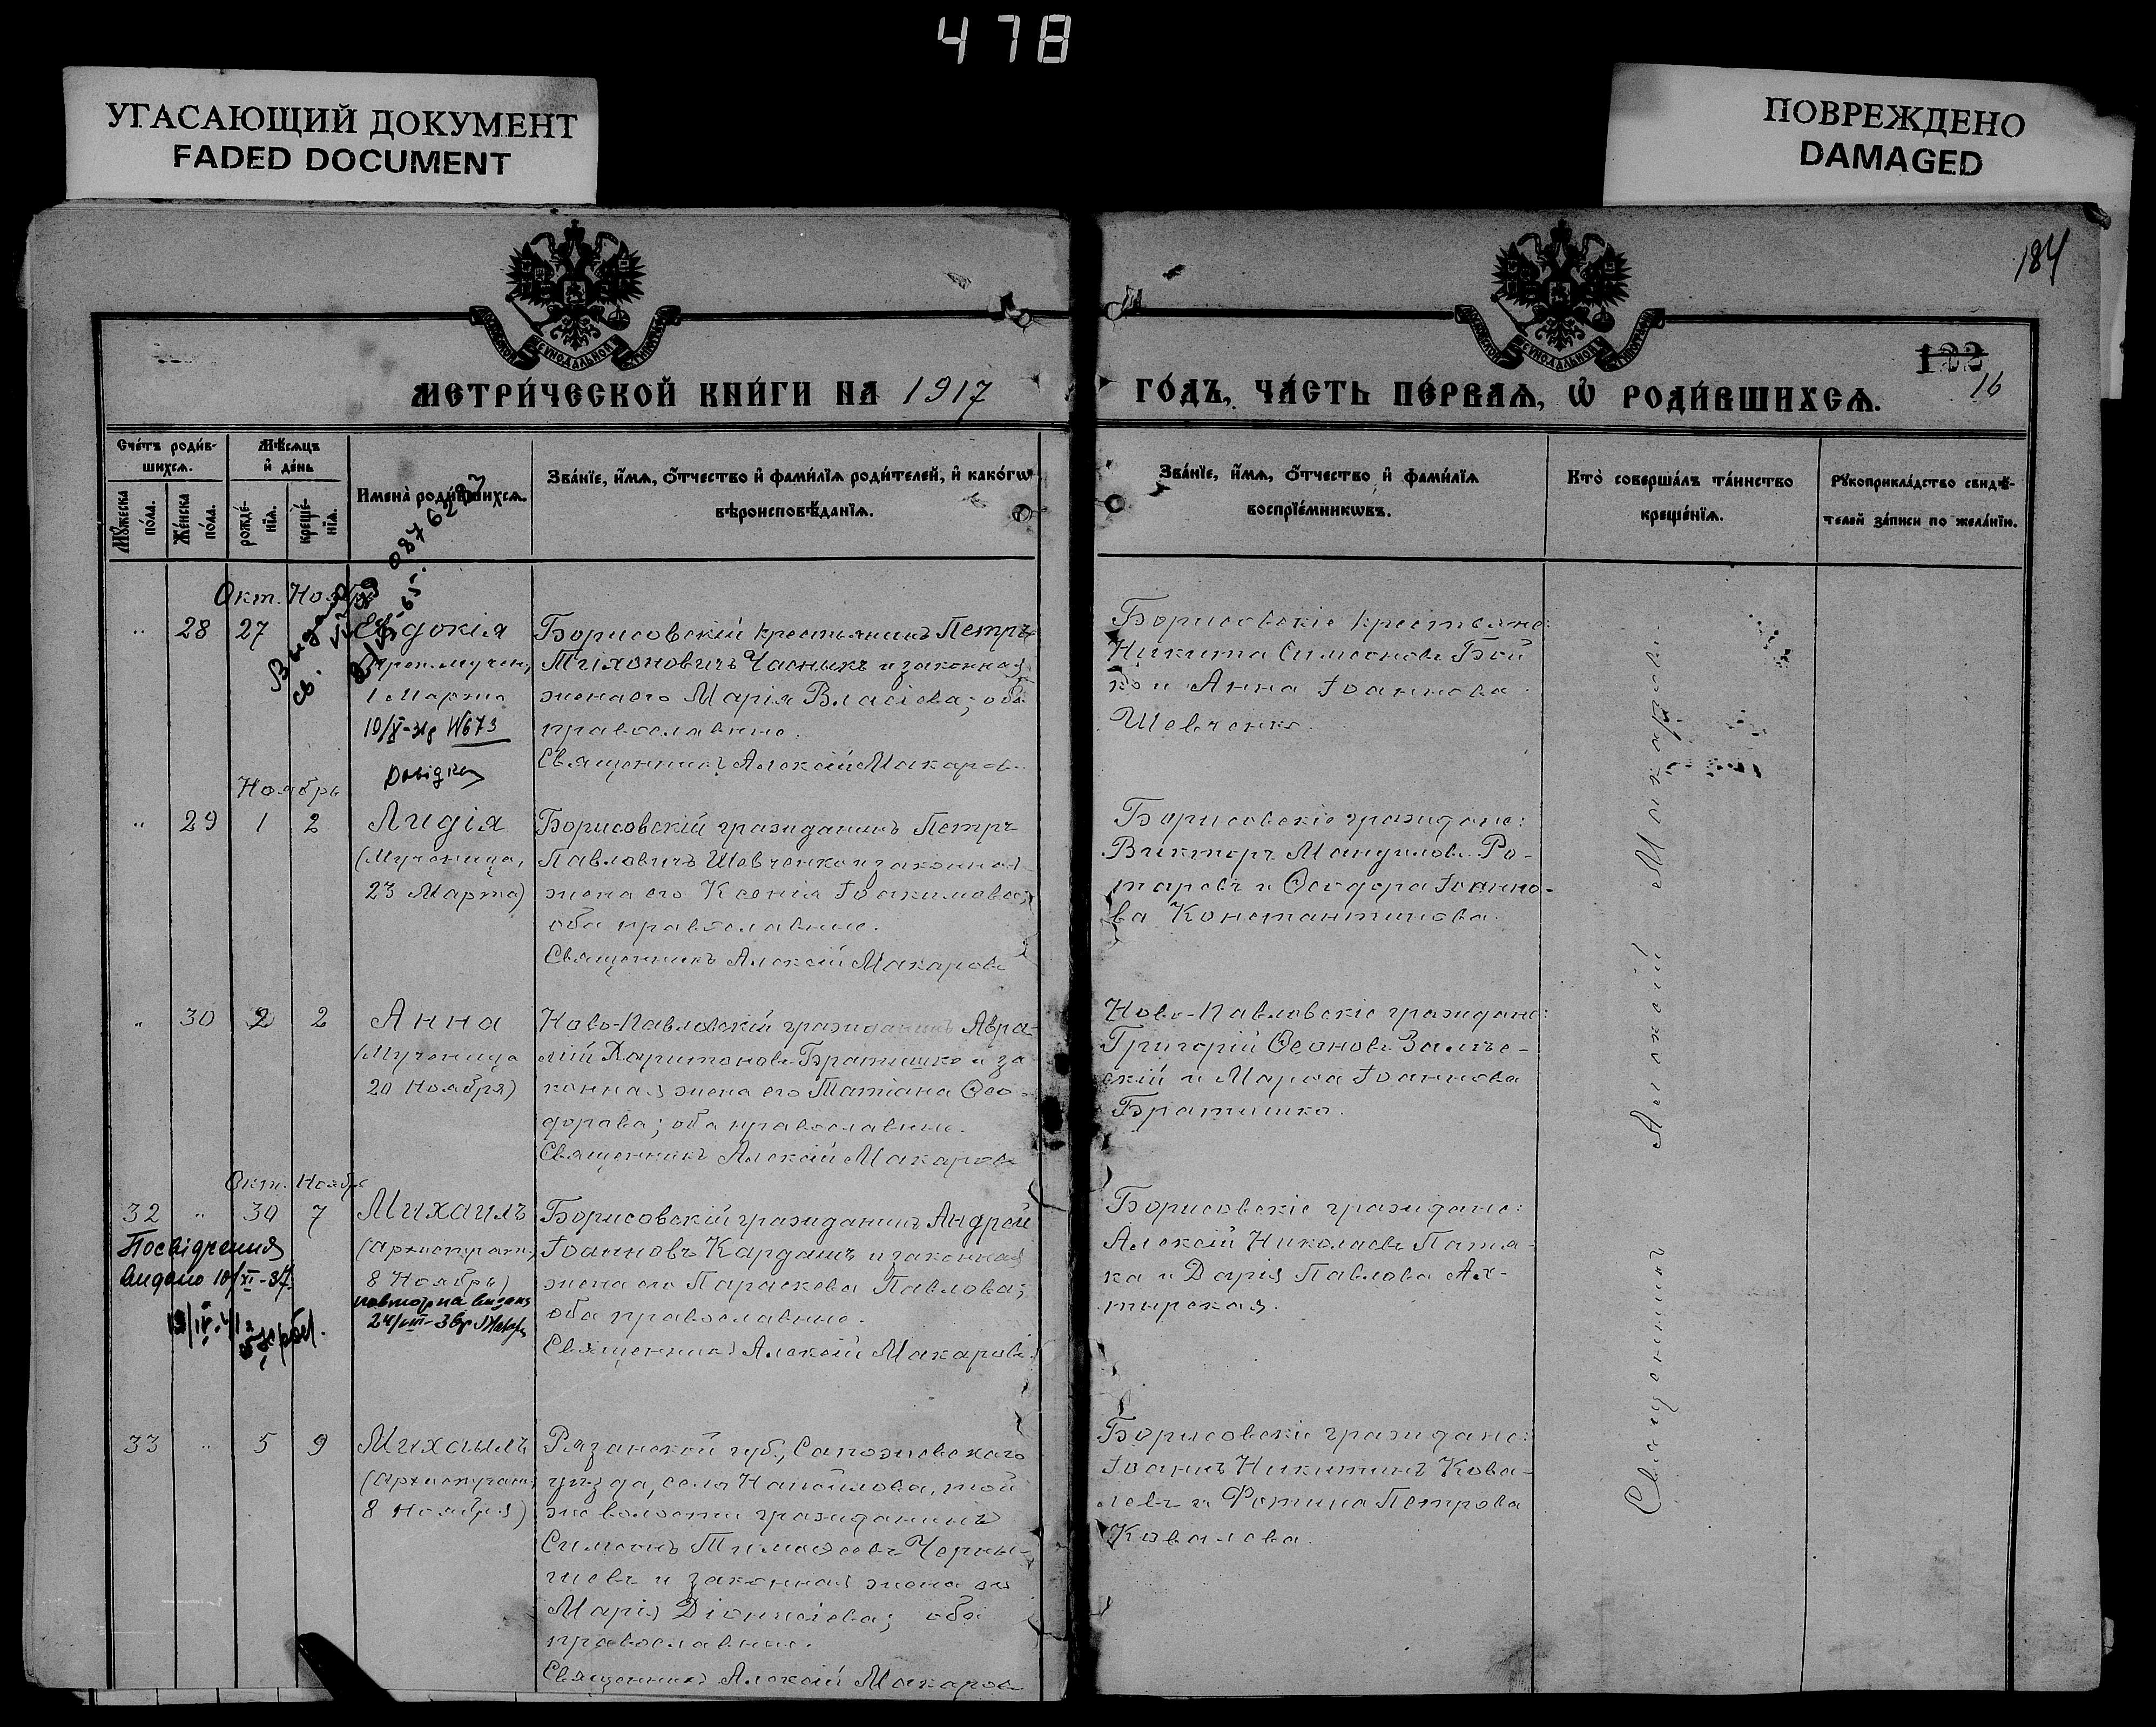 478
УГАСАЮЩИЙ ДОКУМЕНТ
FADED DOCUMENT
ПОВРЕЖДЕНО
DAMAGED
184
122
16
МЕТРИ́ЧЕСКОЙ КНИ́ГИ НА 1917
ГО́ДЪ, ЧА́СТЬ ПЕ́РВАѦ, Ѡ РОДИ́ВШИХСѦ.
Сче́тъ роди́в-
шихсѧ.
Мѣ́сѧцъ
и҆ де́нь
Мꙋ́жеска
по́ла.
Же́нска
по́ла.
рожде́-
нїѧ.
креще́-
нїѧ.
Имена̀ роди́вшихсѧ.
Зва́нїе, и҆́мѧ, ѻ҆́тчество и҆ фами́лїѧ роди́телей, и҆ како́гѡ
вѣроисповѣ́данїѧ.
Зва́нїе, и҆́мѧ, ѻ҆́тчество и҆ фами́лїѧ
воспрїе́мникѡвъ.
Кто̀ соверша́лъ та́инство
креще́нїѧ.
Рꙋкоприкла́дство свидѣ́-
телей за́писи по жела́нїю.
Окт. Ноябрь
„ 28 27
Евдокія
1 Марта
10/X-31р №673
Довідка
Борисовскій крестьянинъ Петръ
Тихоновичъ Часныкъ и законная
жена его Марія Власіева; оба
православные.
Священникъ Алексій Макаровъ
Борисовскіе крестьяне:
Никита Симеоновъ Бой
ко и Анна Іоаннова
Шевченко.
Ноябрь
„ 29 1 2
Лидія
(Мученица,
23 Марта)
Борисовскій гражданинъ Петръ
Павловичъ Шевченко и законная
жена его Ксенія Іоакимова;
оба православные.
Священникъ Алексій Макаровъ
Борисовскіе граждане:
Викторъ Мандиловъ Ро-
таревъ и Ѳеодора Іоанно-
ва Константинова.
„ 30 2 2
Анна
(Мученица
20 Ноября)
Ново-Павловскій гражданинъ Авра-
мій Харитоновъ Братишко и за
конная жена его Татіана Ѳео-
дорова; оба православные.
Священникъ Алексій Макаровъ
Ново-Павловскіе граждане:
Григорій Ѳеоновъ Залѣс-
скій и Марѳа Іоаннова
Братишко.
Окт. Ноябрь
32 „ 30 7
Посвідчення
видано 10/XI-37.
Михаилъ
(Архистратиг,
8 Ноября)
повторна видана
24/VIII-38р
Борисовскій гражданинъ Андрей
Іоанновъ Кардашъ и законная
жена его Параскева Павлова;
оба православные.
Священникъ Алексій Макаровъ
Борисовскіе граждане:
Алексій Николаевъ Патя-
ка и Дарія Павлова Ах-
тырская.
33 „ 5 9
Михаилъ
(Архистратиг,
8 Ноября)
Рязанской губ., Сапожковскаго
уѣзда, села Напойлова, той
же волости гражданинъ
Симеонъ Тимоѳеевъ Черны-
шевъ и законная жена его
Марія Діонисіева; оба
православные.
Священникъ Алексій Макаровъ
Борисовскіе граждане:
Іоаннъ Никитинъ Кова-
левъ и Фотина Петрова
Ковалева.
Священникъ Алексій Макаровъ.